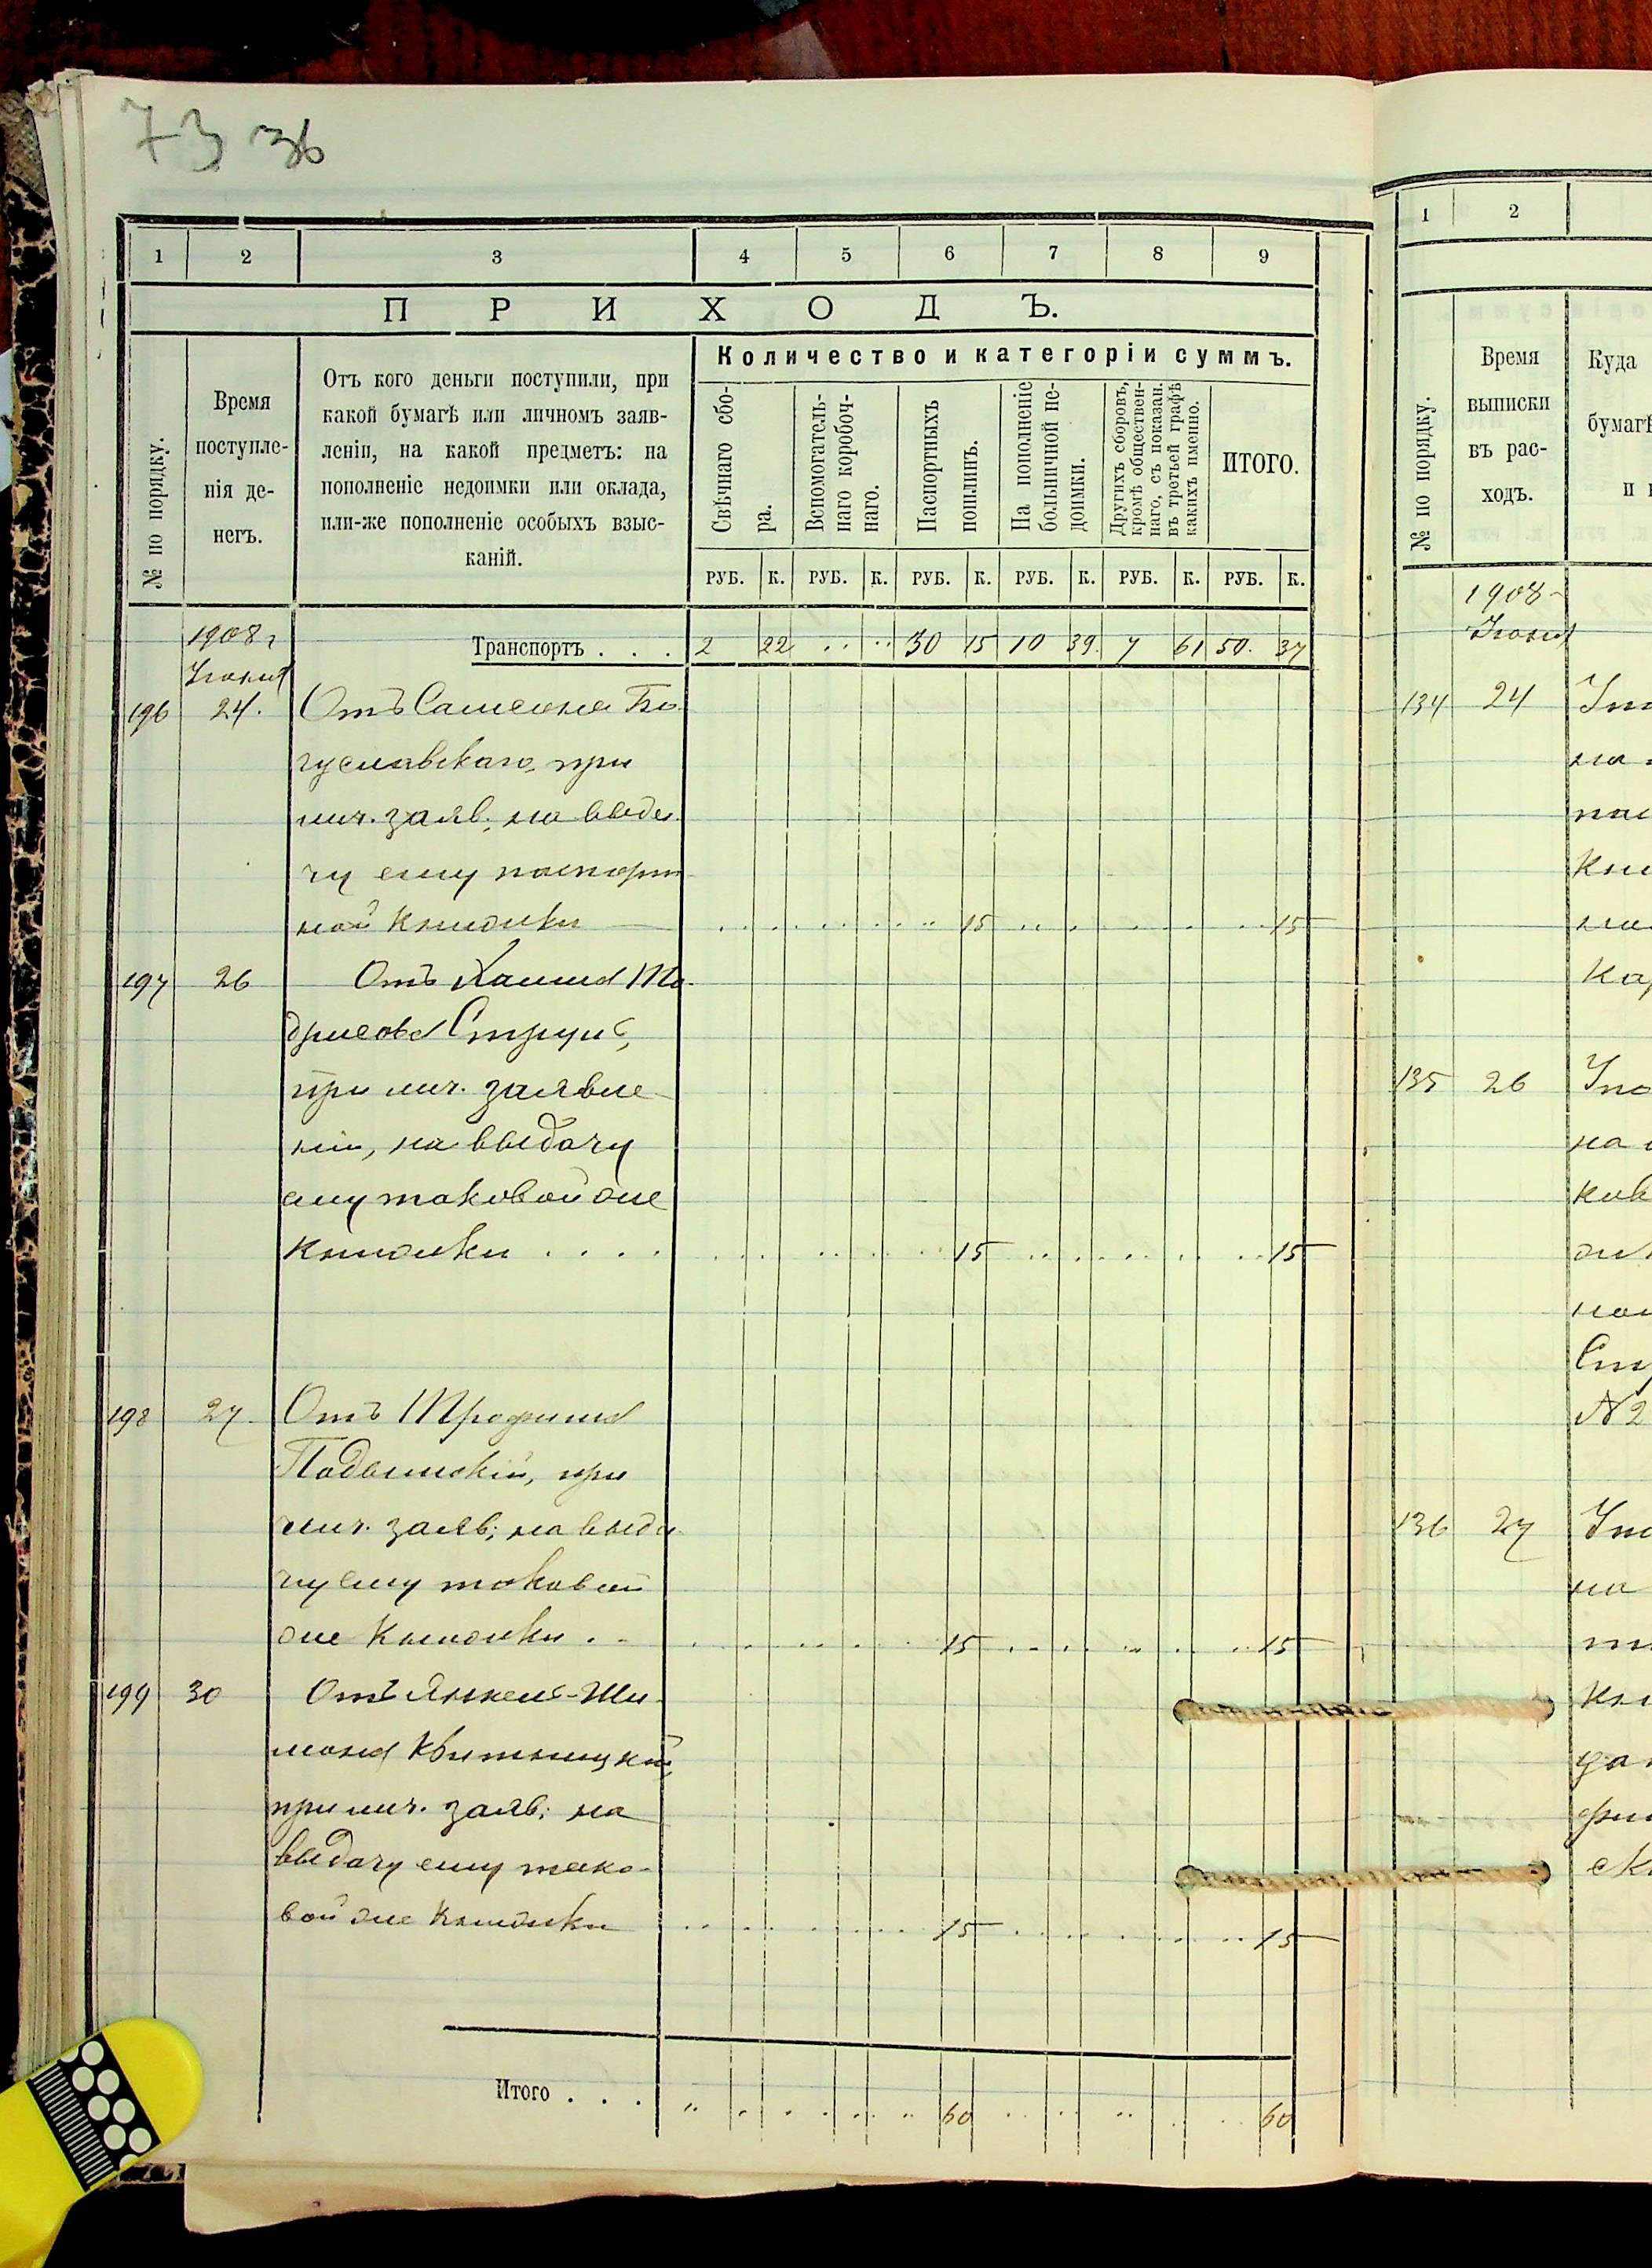 73 36
1 2 3 4 5 6 7 8 9
ПРИХОДЪ.
№ по порядку.
Время
поступле-
нія де-
негъ.
Отъ кого деньги поступили, при
какой бумагѣ или личномъ заяв-
леніи, на какой предметъ: на
пополненіе недоимки или оклада,
или-же пополненіе особыхъ взыс-
каній.
Количество и категоріи суммъ.
Свѣчнаго сбо-
ра.
Вспомогатель-
наго коробоч-
наго.
Паспортныхъ
пошлинъ.
На пополненіе
больничной не-
доимки.
Другихъ сборовъ,
кромѣ обществен-
наго, съ показан.
въ третьей графѣ
какихъ именно.
ИТОГО.
РУБ. К. РУБ. К. РУБ. К. РУБ. К. РУБ. К. РУБ. К.
1908 г
Іюня
Транспортъ . . . 2 22 30 15 10 39 7 61 50. 37
196 24. Отъ Бо-
гуславскаго, при
лич. заяв., на выда-
чу ему паспорт
ной книжки 15 15
197 26 Отъ Хаима
при лич. заявле-
ніи, на выдачу
ему таковой же
книжки . . . . 15 15
198 27. Отъ Трофима
Подвинскій, при
лич. заяв., на выда-
чу ему таковой
же книжки . . 15 15
199 30 Отъ Янкель-Ши-
мона Квитницкій,
при лич. заяв., на
выдачу ему тако-
вой же книжки 15 15
Итого . . . 60 60
1 2
№ по порядку.
Время
выписки
въ рас-
ходъ.
Куда
бумагѣ
и
1908
Іюня
134 24
на
135 26
на
№ 2
136 27
на